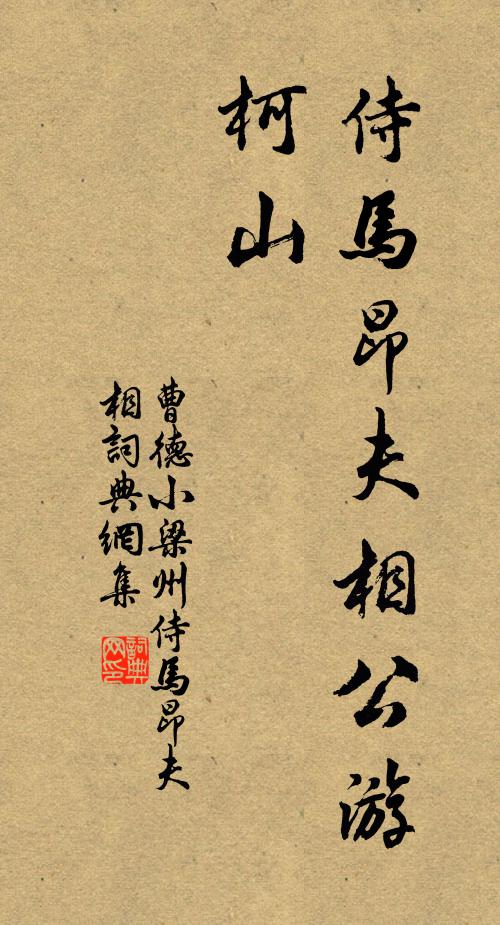 侍馬昂夫相公游
柯山
曹德小梁州侍馬昂夫
相詞典網集
詞典网印